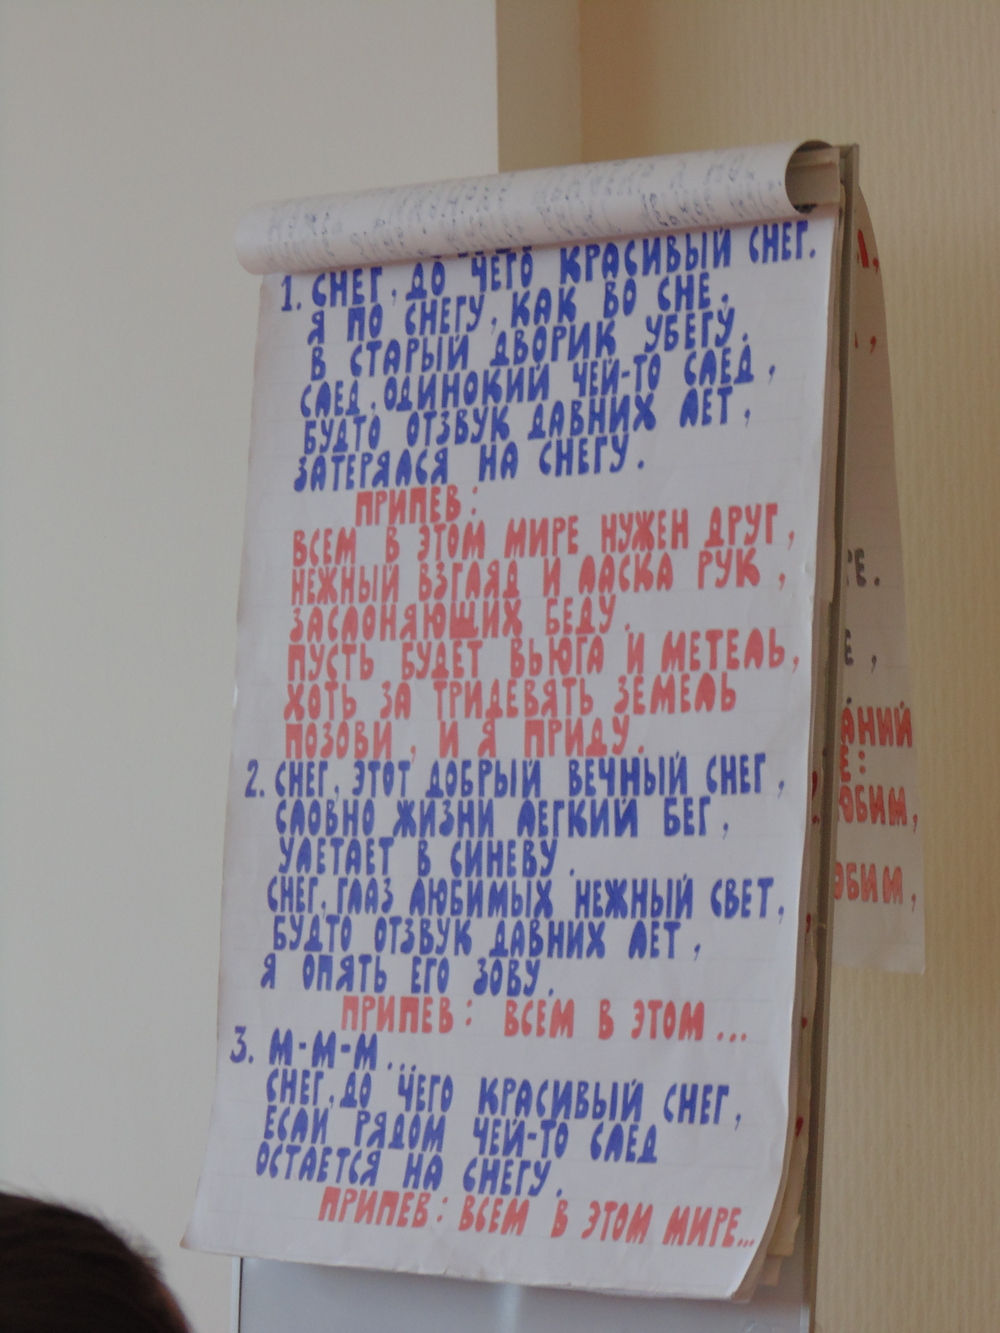 1. СНЕГ, ДО ЧЕГО КРАСИВЫЙ СНЕГ.
Я ПО СНЕГУ, КАК ВО СНЕ,
В СТАРЫЙ ДВОРИК УБЕГУ.
СЛЕД, ОДИНОКИЙ ЧЕЙ-ТО СЛЕД,
БУДТО ОТЗВУК ДАВНИХ ЛЕТ,
ЗАТЕРЯЛСЯ НА СНЕГУ.
ПРИПЕВ:
ВСЕМ В ЭТОМ МИРЕ НУЖЕН ДРУГ,
НЕЖНЫЙ ВЗГЛЯД И ЛАСКА РУК,
ЗАСЛОНЯЮЩИХ БЕДУ.
ПУСТЬ БУДЕТ ВЬЮГА И МЕТЕЛЬ,
ХОТЬ ЗА ТРИДЕВЯТЬ ЗЕМЕЛЬ
ПОЗОВИ, И Я ПРИДУ.
2. СНЕГ, ЭТОТ ДОБРЫЙ ВЕЧНЫЙ СНЕГ,
СЛОВНО ЖИЗНИ ЛЕГКИЙ БЕГ,
УЛЕТАЕТ В СИНЕВУ.
СНЕГ, ГЛАЗ ЛЮБИМЫХ НЕЖНЫЙ СВЕТ,
БУДТО ОТЗВУК ДАВНИХ ЛЕТ,
Я ОПЯТЬ ЕГО ЗОВУ.
ПРИПЕВ: ВСЕМ В ЭТОМ...
3. М-М-М...
СНЕГ, ДО ЧЕГО КРАСИВЫЙ СНЕГ,
ЕСЛИ РЯДОМ ЧЕЙ-ТО СЛЕД
ОСТАЕТСЯ НА СНЕГУ.
ПРИПЕВ: ВСЕМ В ЭТОМ МИРЕ...